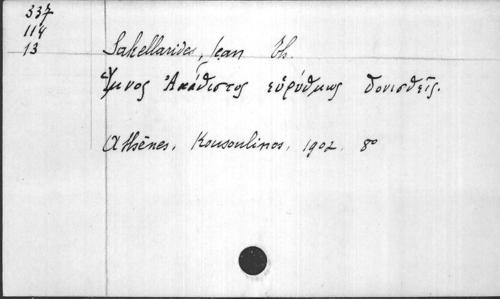 337
114
13
Sakellarides, Jean Th.
Ὕμνος Ἀκάθιστος εὐρύθμως τονισθεῖς.
Athènes, Kousoulinos, 1902. 8º